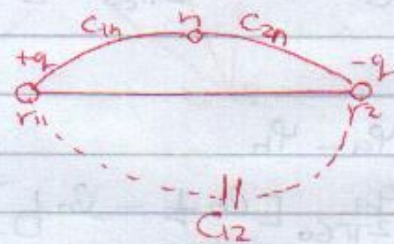 C1n n C2n
+q -q
r11 r2
C12